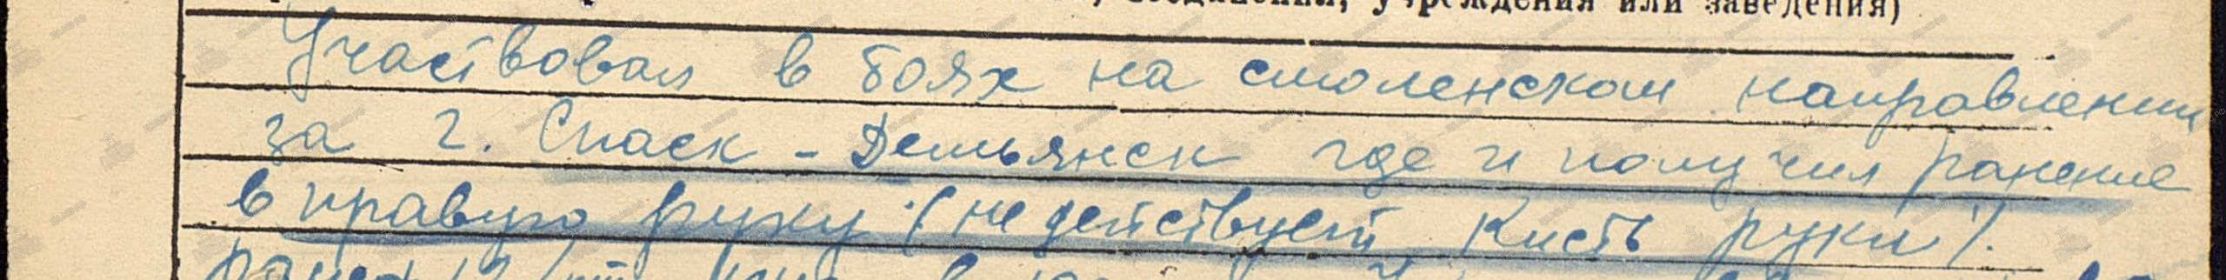 соединения, учреждения или заведения)
Участвовал в боях на смоленском направлении
за г. Спаск - Демьянск где и получил ранение
в правую руку (не действует кисть руки).